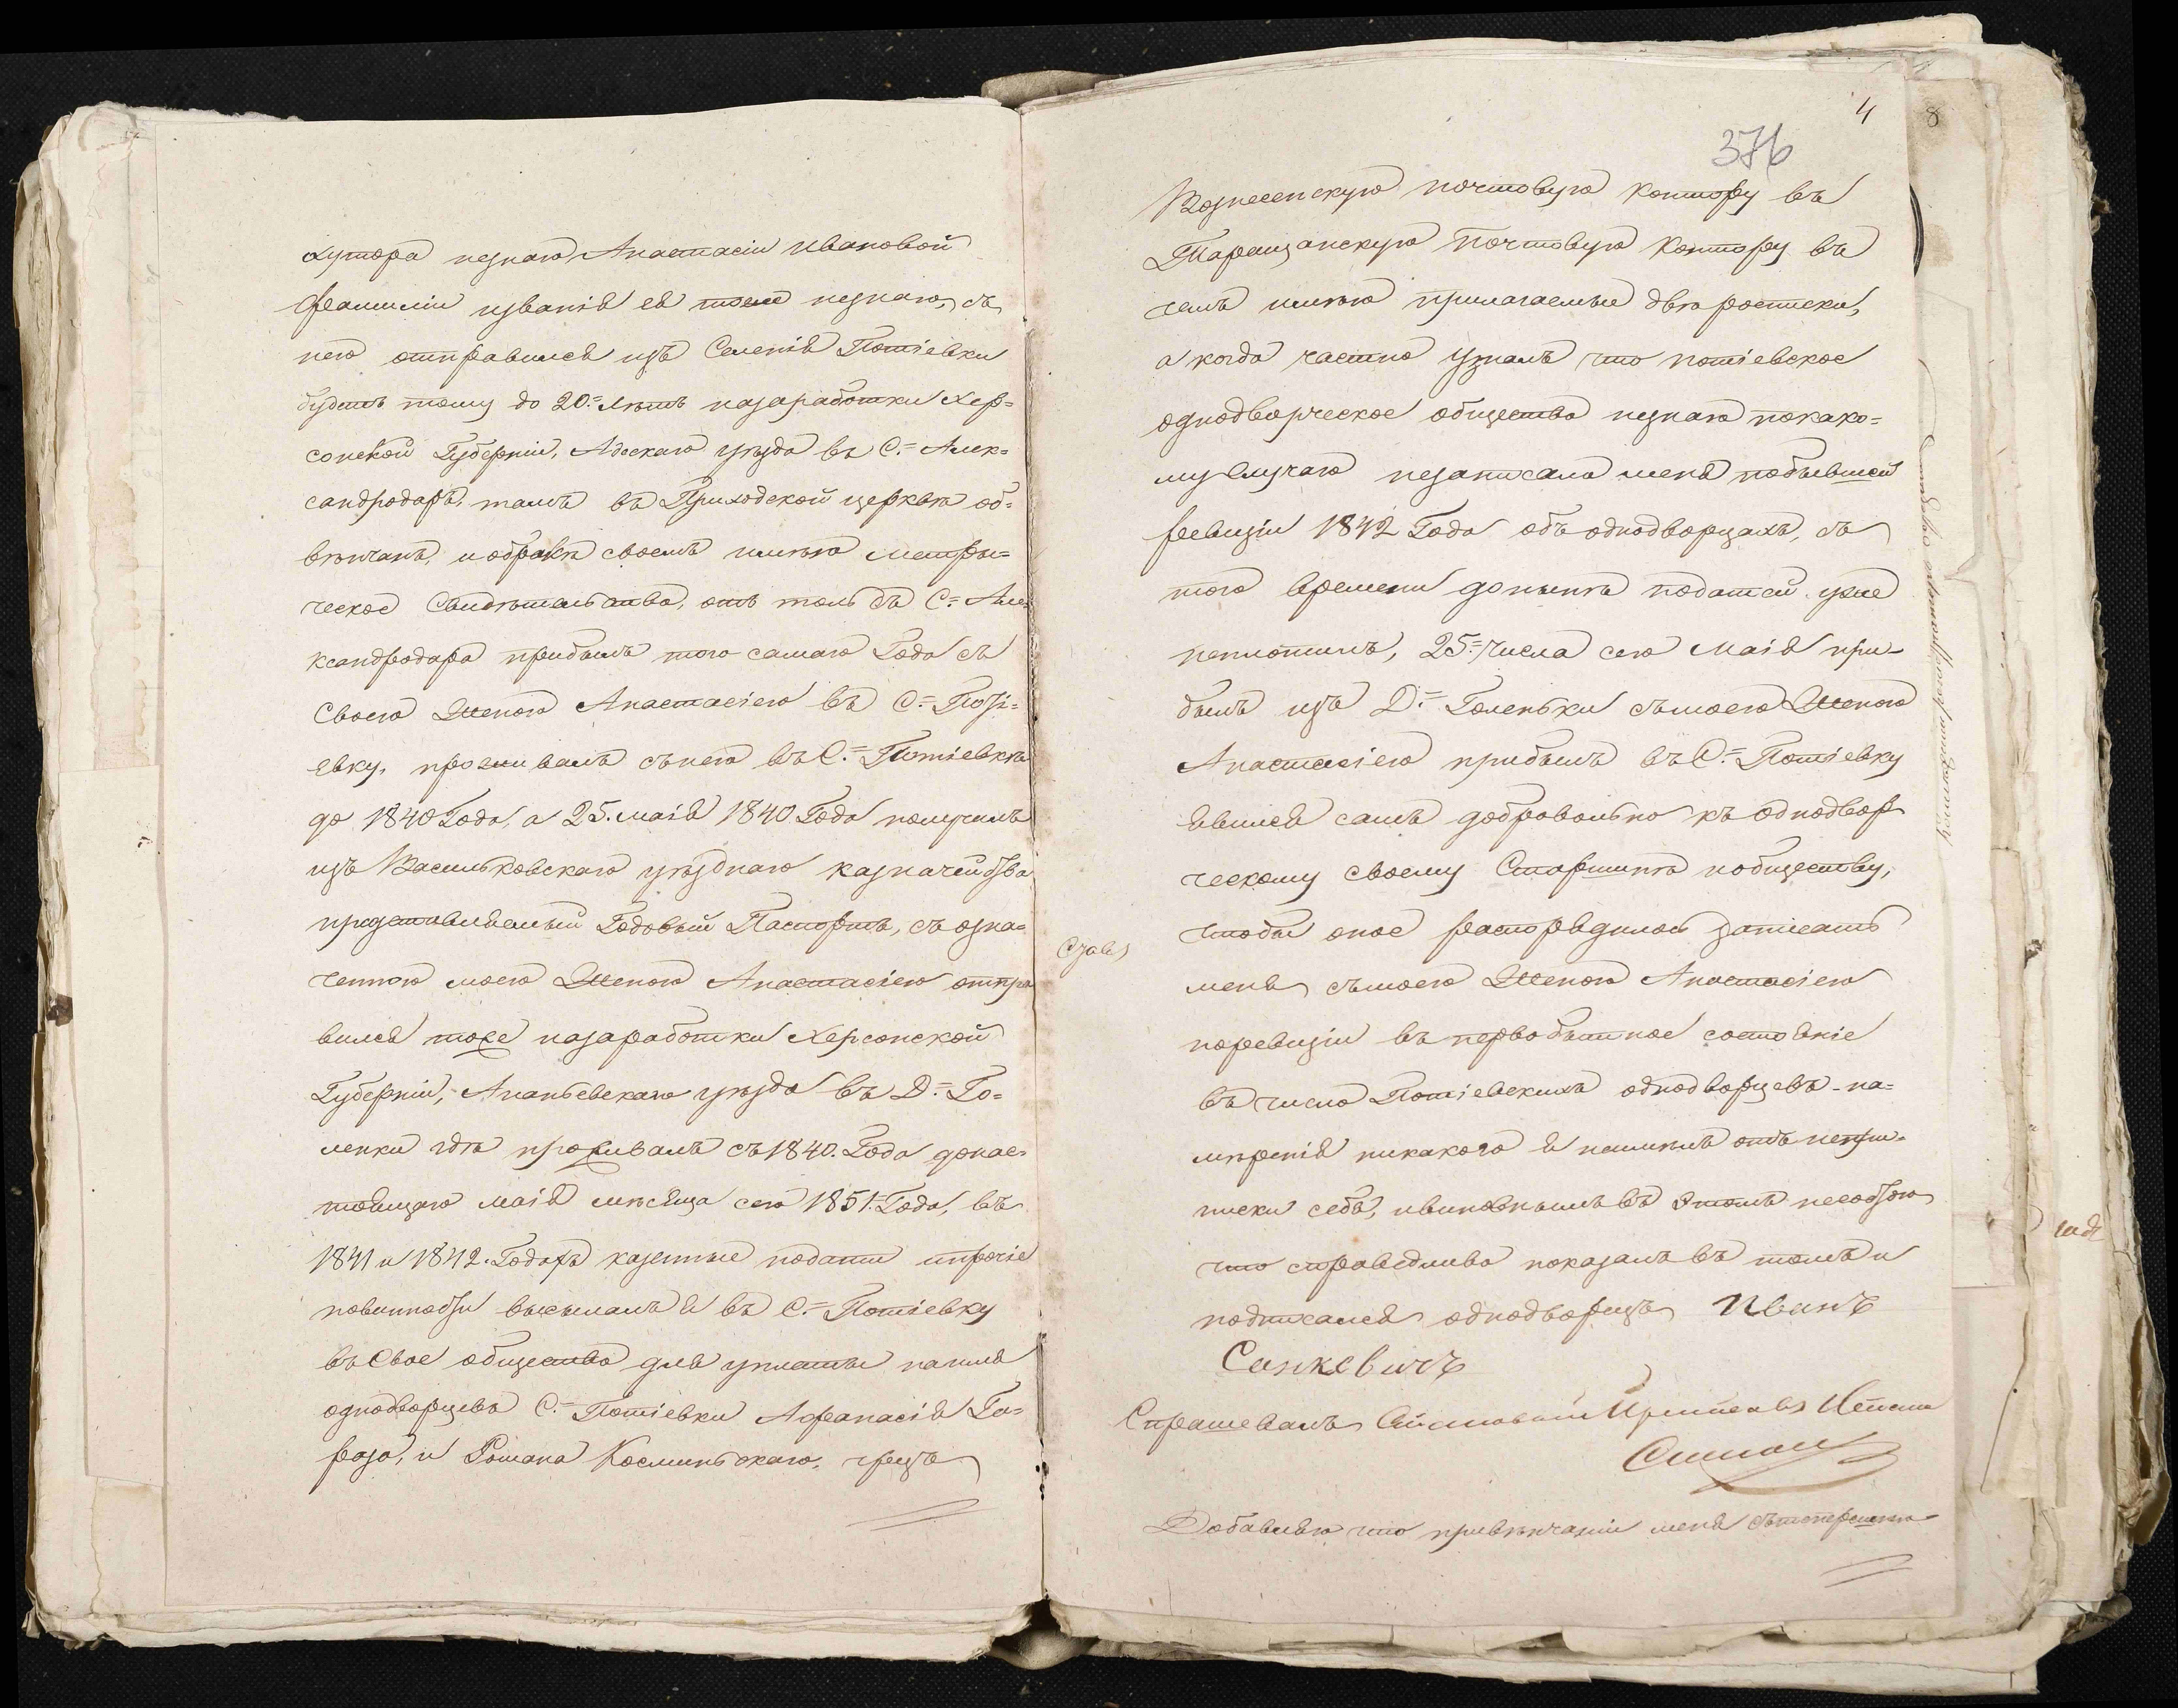 хутора незнаю, Анастасіи Ивановой
фамиліи и званія ея тоже незнаю, съ
нею отправился изъ Селенія Потіевки
будетъ тому до 20.= Лѣтъ назаработки Хер=
сонской Губерніи, Адескаго уѣзда въ С.= Алек=
сандродаръ, тамъ въ Приходской церквѣ об=
вѣнчанъ, и обракѣ своемъ имѣю метры=
ческое Свидѣтельство, отъ толь съ С.= Але=
ксандродара прибылъ того самаго Года съ
Своею Женою Анастасіею въ С.= Поті=
евку, проживалъ сънею въ С.= Потіевкѣ
до 1840 Года, а 25. маія 1840 Года получилъ
изъ Васильковскаго уѣзднаго казначейства
представляемый Годовый Паспортъ, съ озна=
ченною моею Женою Анастасіею отпра
вился тоже назаработки Херсонской
Губерніи, Ананьевскаго уѣзда въ Д.= Го=
ленки гдѣ проживалъ съ 1840. Года донас=
тоящаго маія мѣсяца сего 1851.= Года, въ
1841 и 1842. Годахъ казенные подати ипрочіе
повинности высылалъ я въ С.= Потіевку
въ Свое общество для уплаты наимя
однодворцевъ С.= Потіевки Афанасія Го=
раза, и Романа Косминскаго, чрезъ
4
8
376
Вознесенскую почтовую контору въ
Таращанскую Почтовую Контору въ
чемъ имѣю прилагаемые двѣ росписки,
а когда частно узналъ что потіевское
однодворческое общество незнаю покако=
му случаю незаписало меня побывшей
ревизіи 1842 Года объ однодворцахъ, съ
того времени донынѣ податей уже
неплотилъ, 25.= Числа сего Маія при=
былъ изъ Д.= Голеньки съмоею Женою
Анастасіею прибылъ въ С.= Потіевку
явился самъ добровольно къ однодвор
ческому своему Старшинѣ и обществу,
чтобы оное распорядилось записать
меня съмоею Женою Анастасіею
поревизіи въ первобытное состояніе
въ число Потіевскихъ однодворцевъ - на=
мѣренія никакого я неимѣлъ отъ непри=
писки себѣ, ивиновнымъ въ Этомъ несостою
что справедливо показалъ въ томъ и
подписался однодворецъ Иванъ
Санкевичъ
Спрашевалъ Становый Приставъ
Добавляю что привѣнчаніи меня